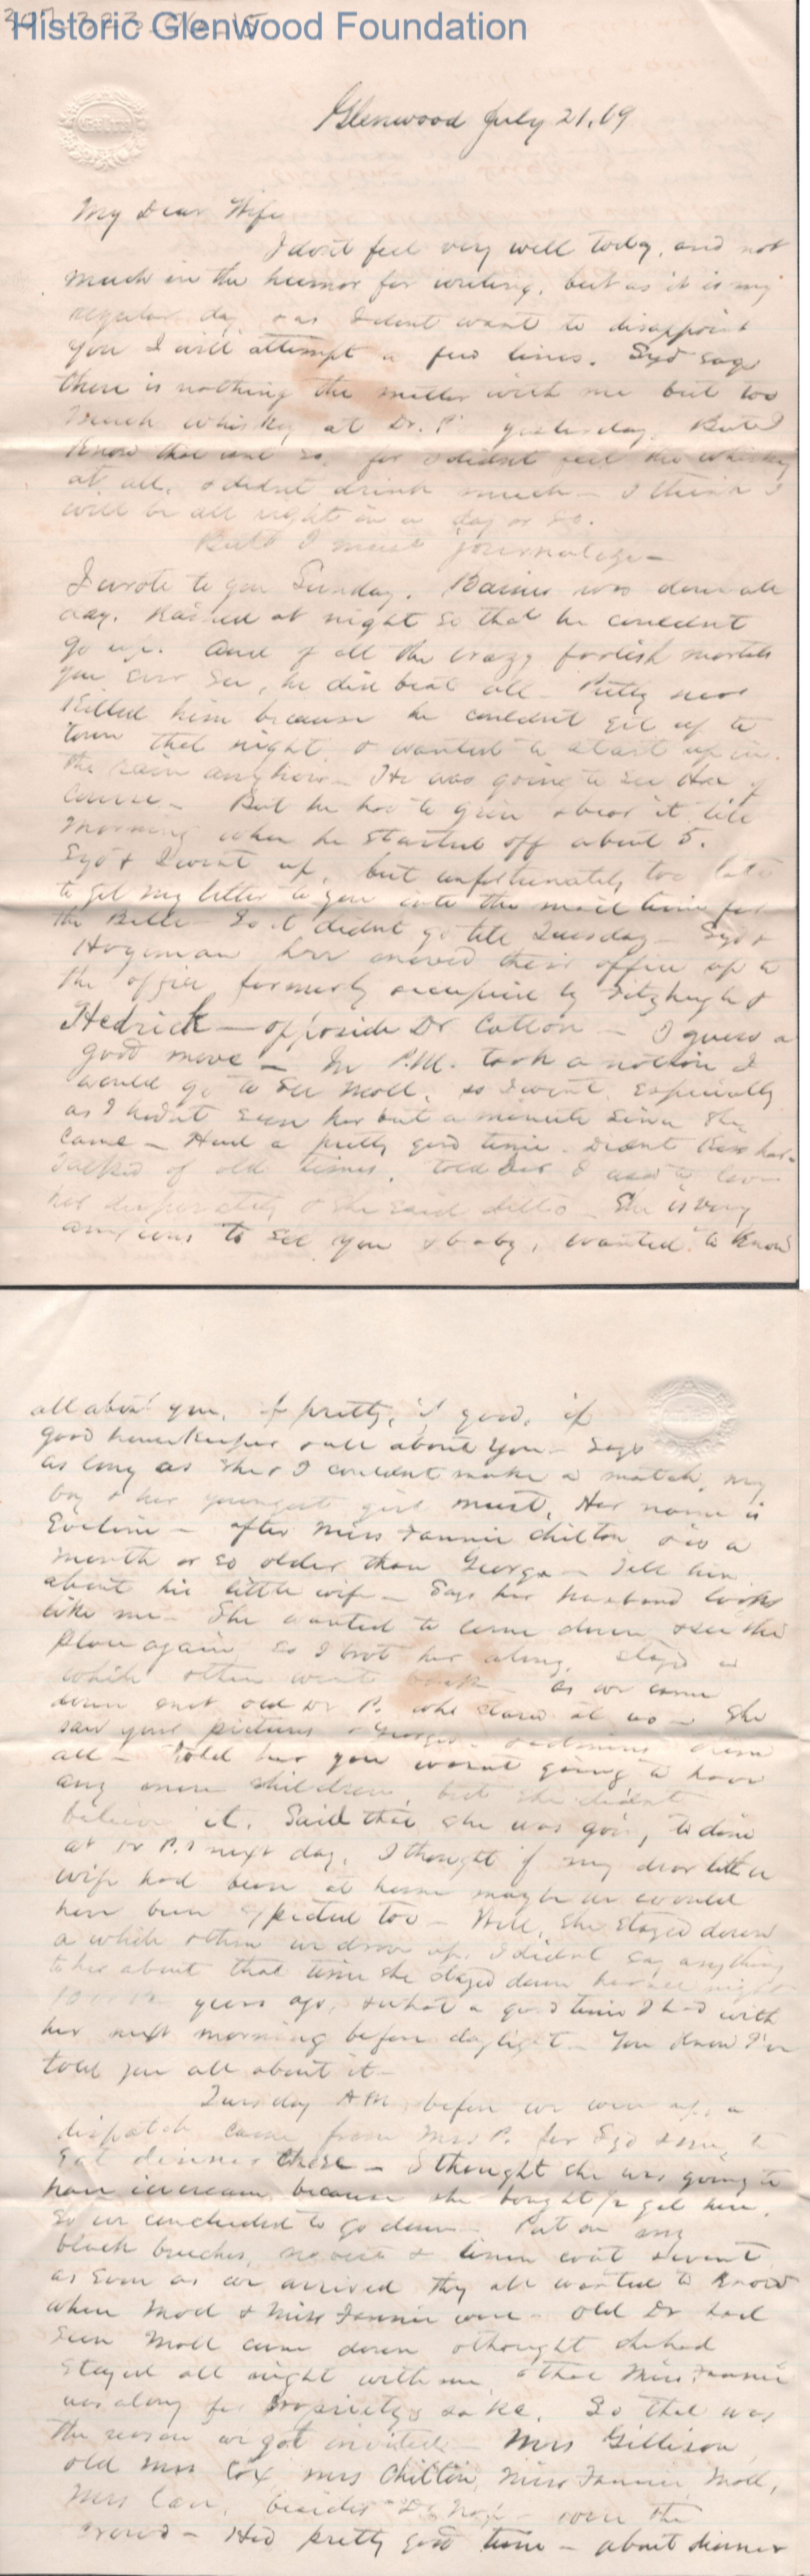 Historic Glenwood Foundation
Glenwood July 21, 69
My Dear Wife
I don't feel very well today, and not
much in the humor for writing, but as it is my
regular day & as I dont want to disappoint
you I will attempt a few lines. Syd says
there is nothing the matter with me but too
much whisky at Dr. P's yesterday. But I
know that aint so, for I didnt feel the whisky
at all, & didnt drink much — I think I
will be all right in a day or so.
But I must journalize —
I wrote to you Sunday. was down all
day. Rained at night so that he couldnt
go up. And of all the crazy foolish mortals
you ever see, he did beat all — Pretty near
killed him because he couldnt get up to
town that night & wanted to start up in
the rain anyhow — He was going to see Her of
course — But he had to grin & bear it till
morning when he started off about 5.
Syd & I went up, but unfortunately too late
to get my letter to you into the mail time for
the Belle — So it didnt go till Tuesday — Syd &
Hogeman have moved their office up to
the office formerly occupied by Fitzhugh &
Hedrick — opposite Dr Cotton — I guess a
good move — In P.M. took a notion I
would go to see Moll, so I went, especially
as I hadnt seen her but a minute since she
came — Had a pretty good time — Didnt kiss her —
Talked of old times, told her I used to love
her desperately & she said ditto — She is very
anxious to see you & baby, wanted to know
all about you, if pretty, if good, if
good housekeeper & all about you — Says
as long as she & I couldnt make a match, my
boy & her youngest girl must, Her name is
Eveline — after Miss Fannie Chilton & is a
month or so older than George — Tell him
about his little wife — Says her husband looks
like me — She wanted to come down & see the
place again so I brot her along, stayd a
while & then went back — as we came
down met old Dr P. who stared at us — She
saw your pictures & Georges —
all — Told her you wasnt going to have
any more children, but she didnt
believe it. Said that she was going to dine
at Dr P.s next day. I thought if my dear little
wife had been at home maybe we would
have been expected too — Well, she stayed down
a while & then we drove up. I didnt say anything
to her about that time she stayed down here all night
years ago, & what a good time I had with
her next morning before daylight — You know I've
told you all about it —
Tuesday A.M. before we were up, a
dispatch came from Mrs P. for Syd & me to
eat dinner there — I thought she was going to
have icecream, because she bought here,
so we concluded to go down — Put on my
black breeches, & linen coat & went
as soon as we arrived they all wanted to know
where Moll & Miss Fannie were — old Dr had
seen Moll come down & thought she had
stayed all night with me, & that Miss Fannie
was along for propriety's sake. So that was
the reason we got invited — Mrs Gillison,
old Mrs Cox, Mrs Chilton, Miss Fannie, Moll,
Mrs besides were the
crowd — Had pretty good time — about dinner